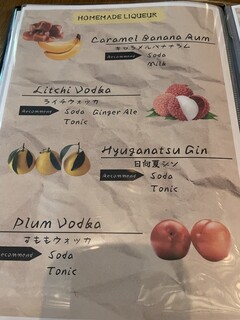 HOMEMADE LIQUEUR
Caramel Banana Rum
キャラメルバナナラム
Recommend Soda
Milk
Litchi Vodka
ライチウォッカ
Recommend Soda Ginger Ale
Tonic
Hyuganatsu Gin
日向夏ジン
Recommend Soda
Tonic
Plum Vodka
すももウォッカ
Recommend Soda
Tonic